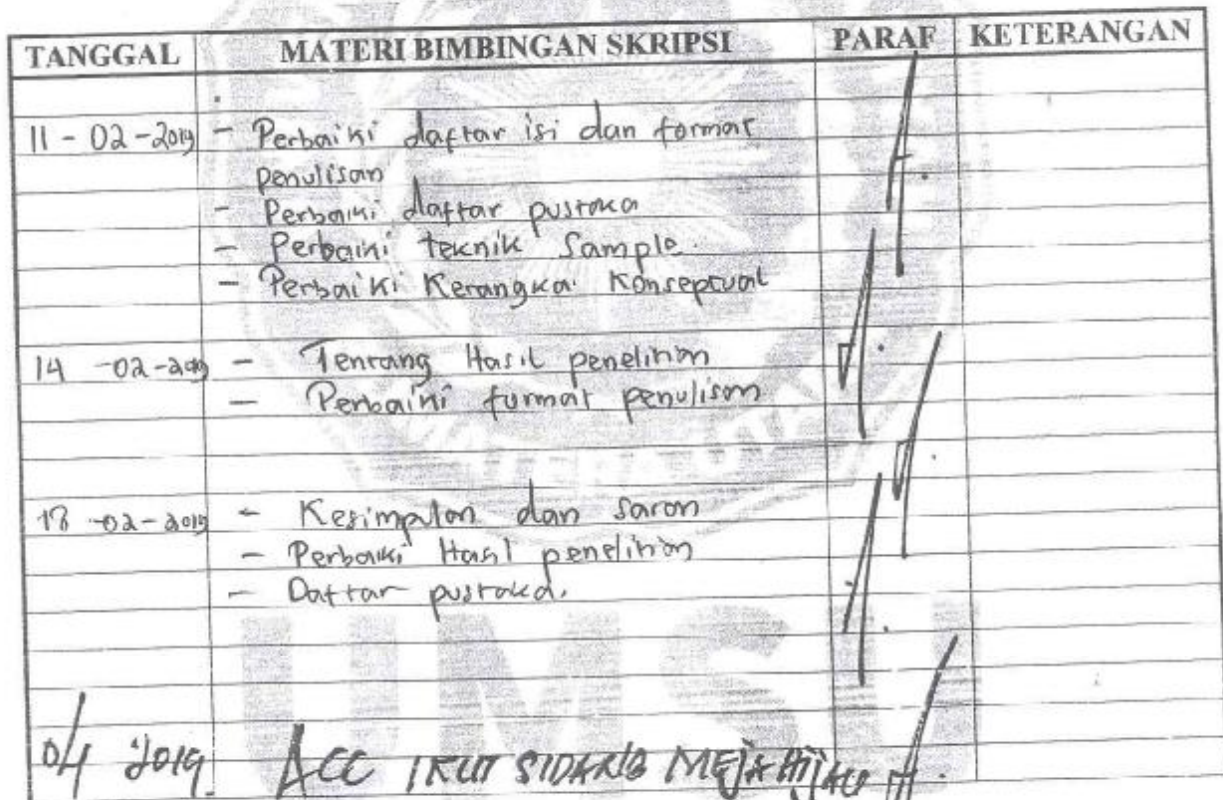 TANGGAL MATERI BIMBINGAN SKRIPSI PARAF KETERANGAN
11 - 02 - 2019 - Perbaiki daftar isi dan format
penulisan
- Perbaiki daftar pustaka
- Perbaiki teknik Sample.
- Perbaiki Kerangka Konseptual
14 - 02 - 2019 - Tentang Hasil penelitian
- Perbaiki format penulisan
18 - 02 - 2019 - Kesimpulan dan saran
- Perbaiki Hasil penelitian
- Daftar pustaka.
04 2019 ACC IKUT SIDANG MEJA HIJAU
UMSU